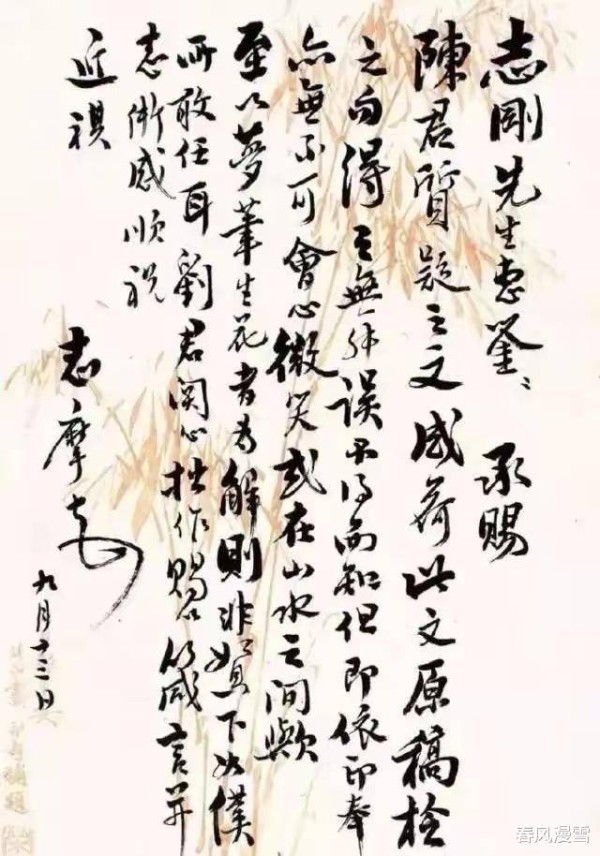 志剛先生惠鋻、承賜
陳君質疑之文感荷此文原稿檢
之勿得無誤不得而知但即依印奉
亦無不可會心微笑或在山水之間歟
至以夢筆生花者為解則非下如僕
所敢任耳劉君関心拙作賜以箴言并
志銜感順祝
近祺
志摩
九月十三日
春风漫雪